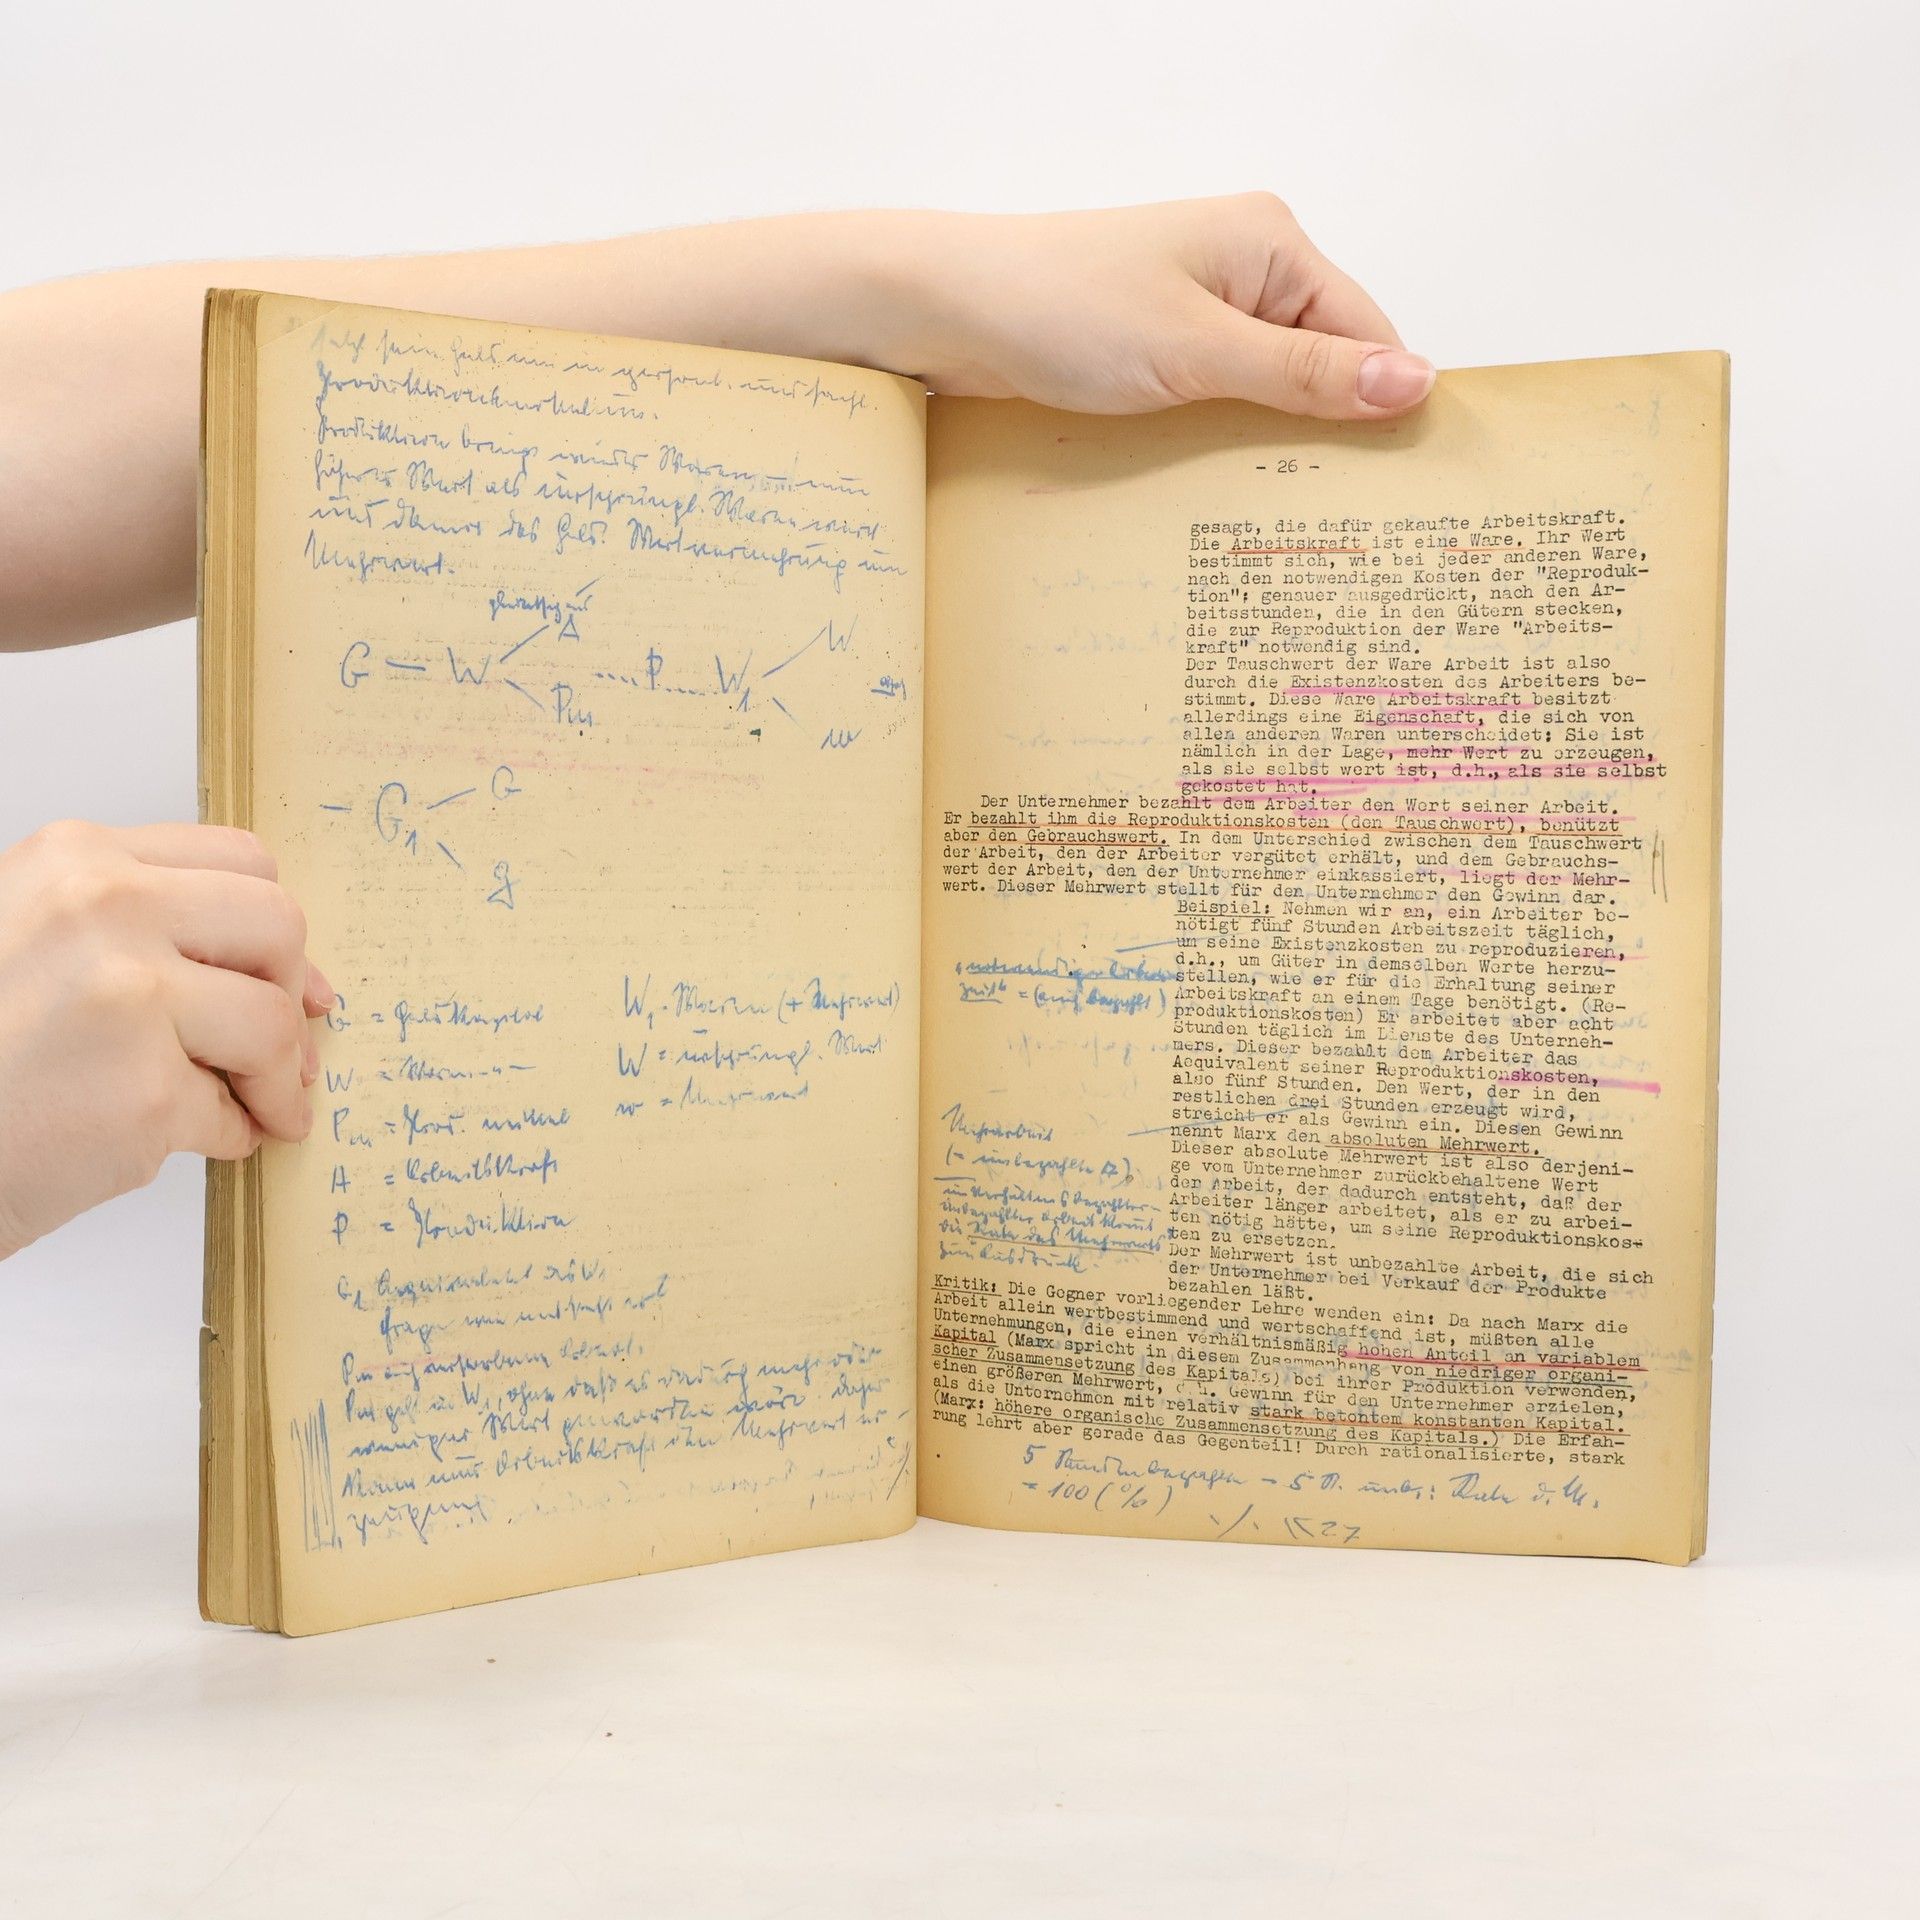 Produktion bringt wieder Waren, nun
höherer Wert als ursprüngl. Waren wert
und damit das Geld. Wertvermehrung um
Mehrwert.
A
G — W ....P.... W1 W
Pm
w
— G1 G
g
G = Geldkapital
W = Waren
Pm = Prod. mittel
A = Arbeitskraft
P = Produktion
W1 = Waren (+ Mehrwert)
W = ursprüngl. Wert
w = Mehrwert
G1 Aequivalent des W1
Pm geht in W1, ohne daß es dadurch mehr oder
weniger Wert geworden wäre. daher
kann nur Arbeitskraft den Mehrwert er-
zeugen
- 26 -
gesagt, die dafür gekaufte Arbeitskraft.
Die Arbeitskraft ist eine Ware. Ihr Wert
bestimmt sich, wie bei jeder anderen Ware,
nach den notwendigen Kosten der "Reproduk-
tion"; genauer ausgedrückt, nach den Ar-
beitsstunden, die in den Gütern stecken,
die zur Reproduktion der Ware "Arbeits-
kraft" notwendig sind.
Der Tauschwert der Ware Arbeit ist also
durch die Existenzkosten des Arbeiters be-
stimmt. Diese Ware Arbeitskraft besitzt
allerdings eine Eigenschaft, die sich von
allen anderen Waren unterscheidet: Sie ist
nämlich in der Lage, mehr Wert zu erzeugen,
als sie selbst wert ist, d.h., als sie selbst
gekostet hat.
Der Unternehmer bezahlt dem Arbeiter den Wert seiner Arbeit.
Er bezahlt ihm die Reproduktionskosten (den Tauschwert), benützt
aber den Gebrauchswert. In dem Unterschied zwischen dem Tauschwert
der Arbeit, den der Arbeiter vergütet erhält, und dem Gebrauchs-
wert der Arbeit, den der Unternehmer einkassiert, liegt der Mehr-
wert. Dieser Mehrwert stellt für den Unternehmer den Gewinn dar.
Beispiel: Nehmen wir an, ein Arbeiter be-
nötigt fünf Stunden Arbeitszeit täglich,
um seine Existenzkosten zu reproduzieren,
d.h., um Güter in demselben Werte herzu-
stellen, wie er für die Erhaltung seiner
Arbeitskraft an einem Tage benötigt. (Re-
produktionskosten) Er arbeitet aber acht
Stunden täglich im Dienste des Unterneh-
mers. Dieser bezahlt dem Arbeiter das
Aequivalent seiner Reproduktionskosten,
also fünf Stunden. Den Wert, der in den
restlichen drei Stunden erzeugt wird,
streicht er als Gewinn ein. Diesen Gewinn
nennt Marx den absoluten Mehrwert.
Dieser absolute Mehrwert ist also derjeni-
ge vom Unternehmer zurückbehaltene Wert
der Arbeit, der dadurch entsteht, daß der
Arbeiter länger arbeitet, als er zu arbei-
ten nötig hätte, um seine Reproduktionskos-
ten zu ersetzen.
Der Mehrwert ist unbezahlte Arbeit, die sich
der Unternehmer bei Verkauf der Produkte
bezahlen läßt.
"notwendige Arbeits
zeit" = (auch bezahlt)
Mehrarbeit
(= unbezahlte A)
im Verhältnis bezahlter -
unbezahlter Arbeit kommt
die Rate des Mehrwerts
zum Ausdruck.
Kritik: Die Gegner vorliegender Lehre wenden ein: Da nach Marx die
Arbeit allein wertbestimmend und wertschaffend ist, müßten alle
Unternehmungen, die einen verhältnismäßig hohen Anteil an variablem
Kapital (Marx spricht in diesem Zusammenhang von niedriger organi-
scher Zusammensetzung des Kapitals) bei ihrer Produktion verwenden,
einen größeren Mehrwert, d.h. Gewinn für den Unternehmer erzielen,
als die Unternehmen mit relativ stark betontem konstanten Kapital.
(Marx: höhere organische Zusammensetzung des Kapitals.) Die Erfah-
rung lehrt aber gerade das Gegenteil! Durch rationalisierte, stark
5 Stunden bezahlte – 5 St. unb.: Rate d. M.
= 100 (%)